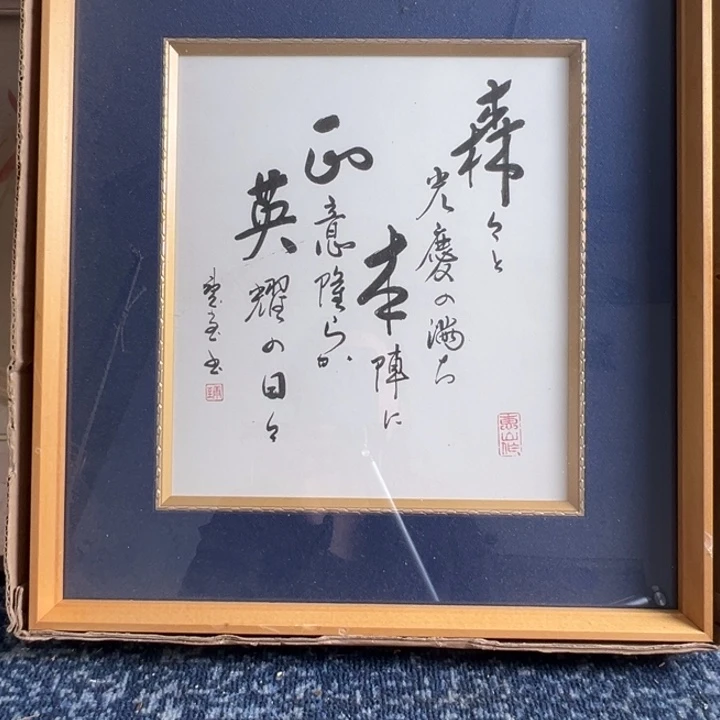 森々と
光慶の満ち
本陣に
正意隆らか
英耀の日々